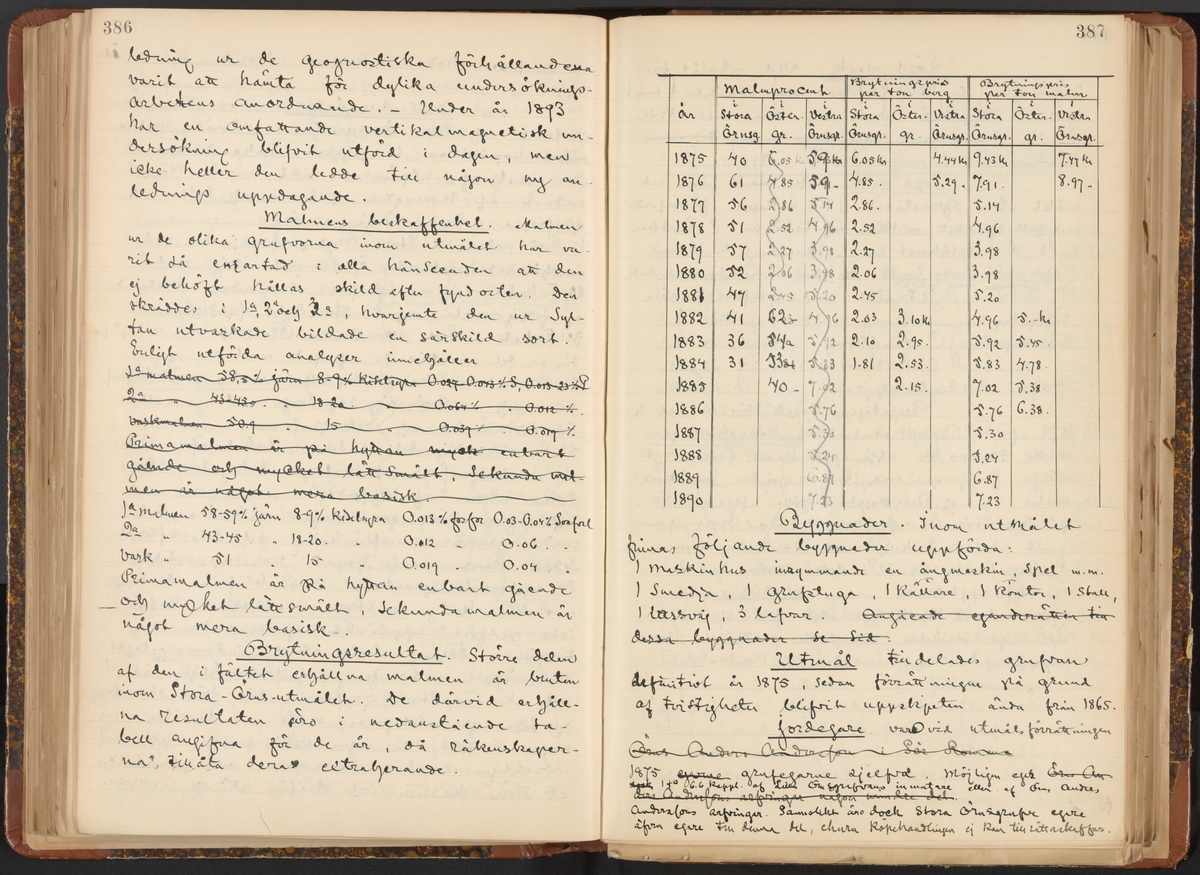 386
ledning ur de geognostiska förhållandena
varit att hämta för dylika undersöknings-
arbetens anordnande – Under år 1893
har en omfattande vertikalmagnetisk un-
dersökning blifvit utförd i dagen, men
icke heller den ledde till någon ny an-
lednings uppdagande.
Malmens beskaffenhet. Malmen
ur de olika grufvorna inom utmålet har va-
rit så enartad i alla hänseenden att den
ej behöft hållas skild efter fyndorten. Den
skräddes i 1a, 2a och 3a, hvarjemte den ur Syl-
tan utvaskade bildade en särskild sort.
Enligt utförda analyser innehåller
1a malmen 58,5% järn 8-9% kiselsyra 0.027-0.043% S, 0.013-23% P
2a " 43-435. 18-20 0.064% . 0.012 %.
vaskmalmen 50.9 . 15 0.039% . 0.019 %
Primamalmen är på hyttan myck enbart
gående och mycket lätt smält, Sekunda mal-
men är något mera basisk.
1a malmen 58-59% järn 8-9% kiselsyra 0.013% fosfor 0.03-0.04%
2a " 43-45 " 18-20. 0.012 - 0.06 . .
vask " 51 . 15 - . 0.019 . 0.04 . .
Primamalmen är på hyttan enbart gående
och mycket lättsmält Sekundamalmen är
något mera basisk.
Brytningsresultat. Större delen
af den i fältet erhållna malmen är bruten
inom Stora-Örns-utmålet. De därvid erhåll-
na resultaten äro i nedanstående ta-
bell angifna för de år, då räkenskaper-
na tillåta deras extraherande.
387
Malmprocent Brytningspris per ton berg Brytningspris per ton malm
år i Stora Örnsg. Öster- gr. i Vestra Örnsgr. i Stora Örnsgr. Öster- gr. i Vestra Örnsgr. i Stora Örnsgr. Öster- gr. i Vestra Örnsgr.
1875 40 6.05 59 6.05 kr 4.44 kr 9.43 kr 7.47 kr
1876 61 4.85 59 - 4.85 . 5.29 - 7.91 . 8.97 -
1877 56 2.86 5.14 2.86. 5.14
1878 51 2.52 4.96 2.52 4.96
1879 57 2.27 3.98 2.27 3.98
1880 52 2.06 3.98 2.06 3.98
1881 47 2.45 5.20 2.45 5.20
1882 41 62 4.96 2.03 3.10 kr 4.96 5.- kr
1883 36 54 5.92 2.10 2.95. 5.92 5.45.
1884 31 53 5.83 1.81 2.53. 5.83 4.78.
1885 40 - 7.02 2.15. 7.02 5.38.
1886 5.76 5.76 6.38.
1887 5.30 5.30
1888 5.24 5.24
1889 6.87 6.87
1890 7.23 7.23
Byggnader. Inom utmålet
finnas följande byggnader uppförda:
1 maskinhus inrymmande en ångmaskin, Spel m.m.
1 Smedja, 1 grufstuga, 1 Källare 1 Kontor, 1 Stall,
1 lassvåg, 3 lafvar. Angående eganderätten till
dessa byggnader se Sid.
Utmål tilldelades grufvan
definitivt år 1875, sedan förrättningen på grund
af tvistigheter blifvit uppskjuten ända från 1865.
Jordegare vare vid utmålsförrättningen
Öns Anders Andersson i
1875 grufegarne sjelfva. Möjligen egde
eller af Öns Anders
Anderssons arfvingar. Sannolikt äro dock Stora Örnsgrufve egare
äfven egare till denna del, ehuru köpehandlingen ej kan tillrättaskaffas.